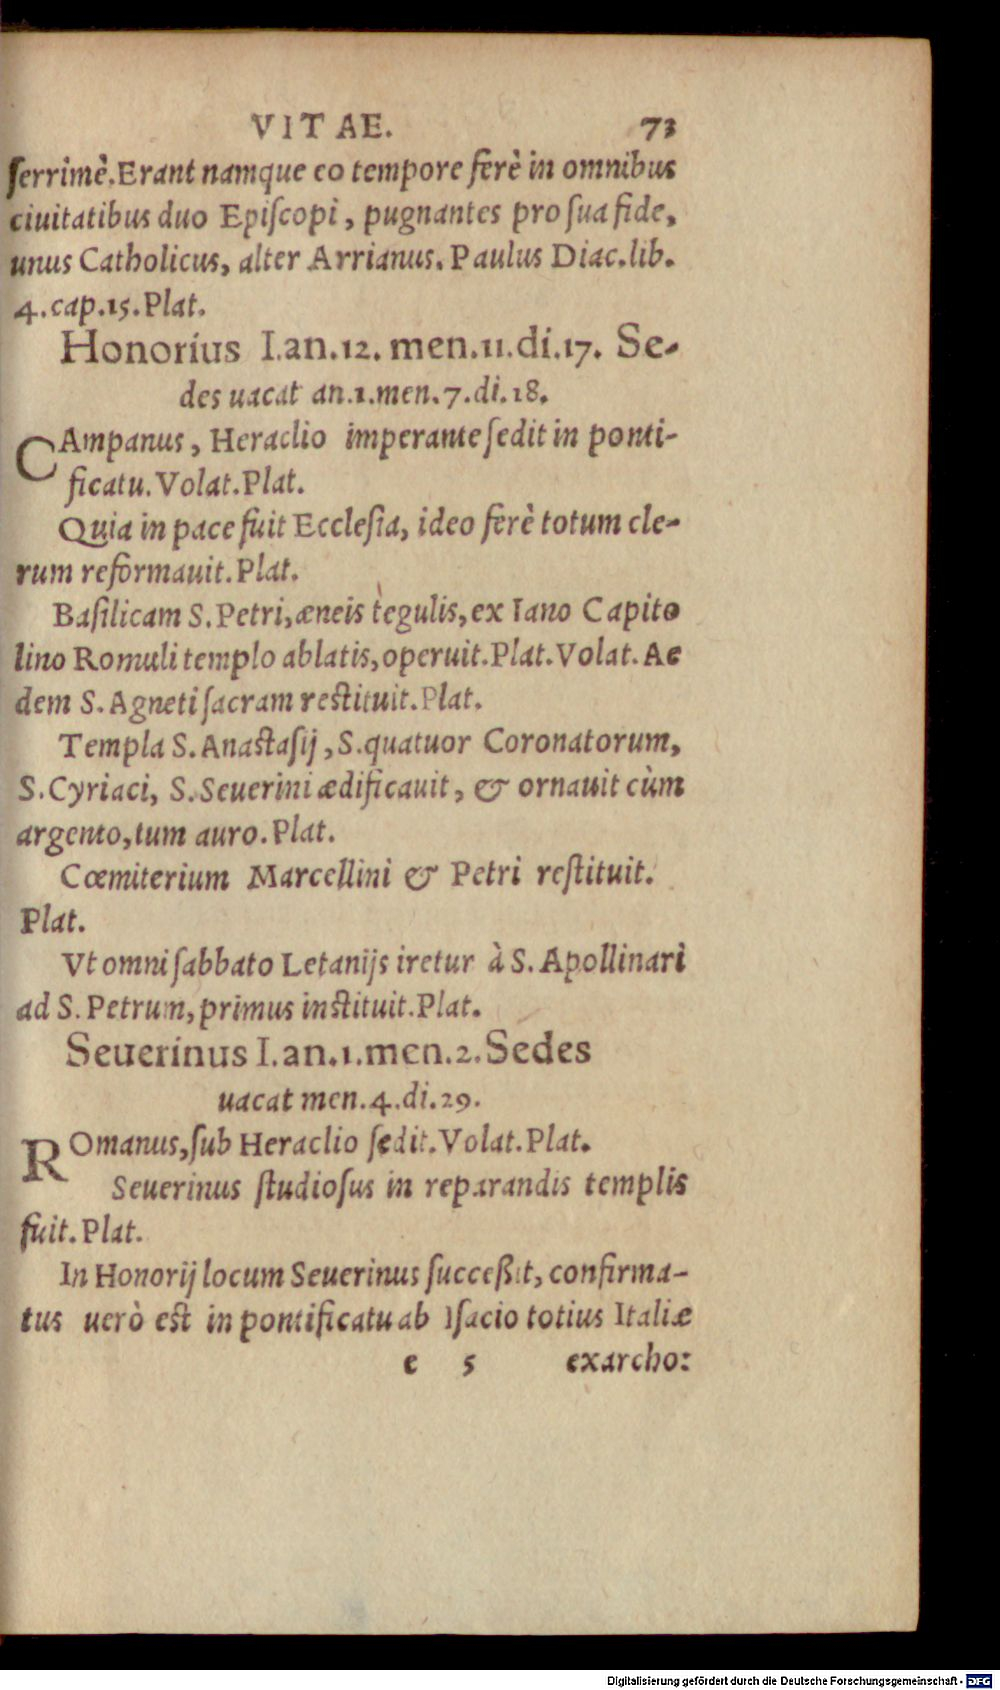 VITAE. 73
ſerrimè. Erant namque eo tempore ferè in omnibus
ciuitatibus duo Epiſcopi, pugnantes pro ſua fide,
unus Catholicus, alter Arrianus. Paulus Diac. lib.
4. cap. 15. Plat.
Honorius I. an. 12. men. 11. di. 17. Se-
des uacat an. 1. men. 7. di. 18.
CAmpanus, Heraclio imperante ſedit in ponti-
ficatu. Volat. Plat.
Quia in pace fuit Eccleſia, ideo ferè totum cle-
rum reformauit. Plat.
Baſilicam S. Petri, æneis tegulis, ex Iano Capito
lino Romuli templo ablatis, operuit. Plat. Volat. Ae
dem S. Agneti ſacram reſtituit. Plat.
Templa S. Anaſtaſij, S. quatuor Coronatorum,
S. Cyriaci, S. Seuerini ædificauit, & ornauit cùm
argento, tum auro. Plat.
Cœmiterium Marcellini & Petri reſtituit.
Plat.
Vt omni ſabbato Letanijs iretur à S. Apollinari
ad S. Petrum, primus inſtituit. Plat.
Seuerinus I. an. 1. men. 2. Sedes
uacat men. 4. di. 29.
ROmanus, ſub Heraclio ſedit. Volat. Plat.
Seuerinus ſtudioſus in reparandis templis
fuit. Plat.
In Honorij locum Seuerinus ſucceßit, confirma-
tus uerò eſt in pontificatu ab Iſacio totius Italiæ
e 5 exarcho:
Digitalisierung gefördert durch die Deutsche Forschungsgemeinschaft - DFG